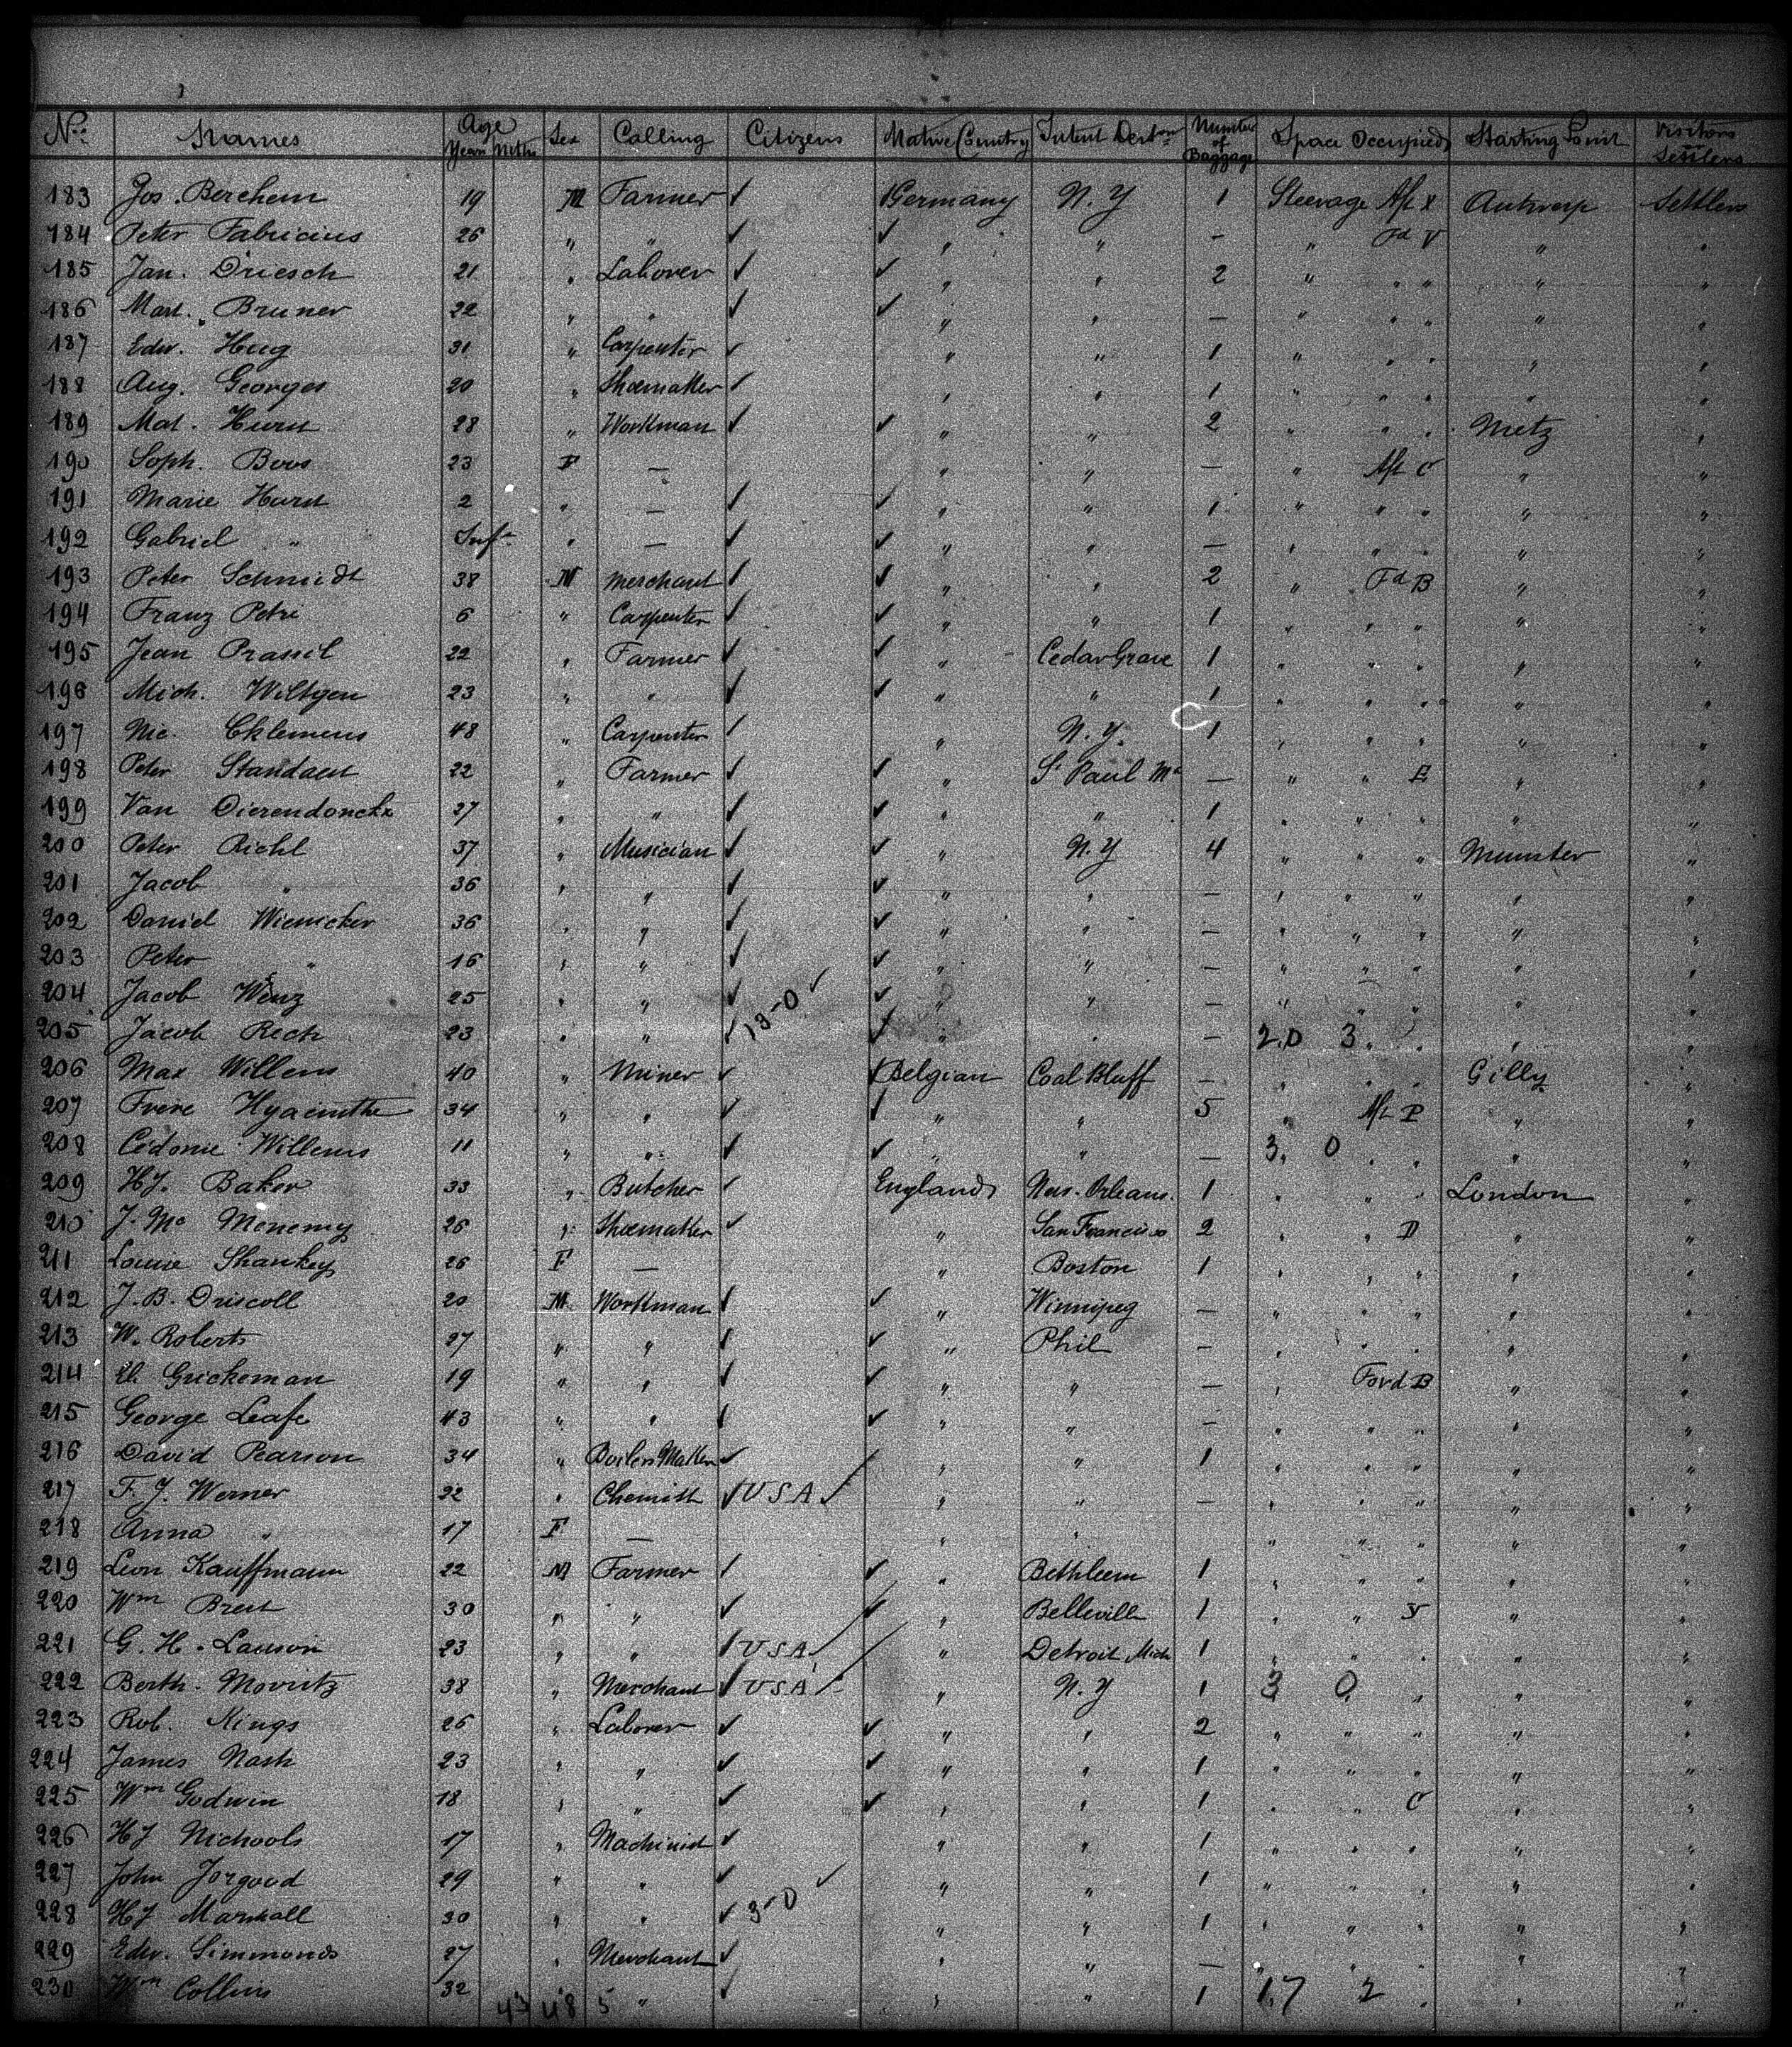 No. Names Age Years Mths Sex Calling Citizens Native Country Intent Deston Number of Baggage Space Occupied Starting Point Visitors or Settlers
183 Jos. Berchem 19 M Farmer ✓ Germany N.Y 1 Steerage Aft Antwerp Settlers
184 Peter Fabricius 26 " " ✓ ✓ " " — " Fd V " "
185 Jan. Driesch 21 " Laborer ✓ ✓ " " 2 " " " " "
186 Mart. Bruner 22 " " ✓ ✓ " " — " " " " "
187 Edw. Hug 31 " Carpenter ✓ " " 1 " " " " "
188 Aug. Georges 20 " Shoemaker ✓ " " 1 " " " " "
189 Mat. Hurst 28 " Workman ✓ ✓ " " 2 " " " Metz "
190 Soph. Boos 23 F — " " — " Aft C " "
191 Marie Hurst 2 " — ✓ ✓ " " 1 " " " " "
192 Gabriel " Inft " — ✓ ✓ " " — " " " " "
193 Peter Schmidt 38 M Merchant ✓ ✓ " " 2 " Fd B " "
194 Franz Petre 6 " Carpenter ✓ ✓ " " 1 " " " " "
195 Jean Prassil 22 " Farmer ✓ ✓ " Cedar Grove 1 " " " " "
196 Mich. Wiltgen 23 " " ✓ ✓ " " 1 " " " " "
197 Nic. Cklemens 48 " Carpenter ✓ " N.Y. 1 " " " " "
198 Peter Standaert 22 " Farmer ✓ ✓ " St Paul — " " E " "
199 Van Dierendonckx 27 " " ✓ ✓ " " 1 " " " " "
200 Peter Richl 37 " Musician ✓ ✓ " N.Y 4 " " " Munster "
201 Jacob " 36 " " ✓ ✓ " " — " " " " "
202 Daniel Wienicker 36 " " ✓ ✓ " " — " " " " "
203 Peter " 16 " " ✓ ✓ " " — " " " " "
204 Jacob Wenz 25 " " ✓ 13-0 ✓ ✓ " " — " " " " "
205 Jacob Rech 23 " " ✓ ✓ " " — 2.0 3 " " "
206 Max Willems 40 " Miner ✓ ✓ Belgian Coal Bluff — " " " Gilly "
207 Frere Hyacinthe 34 " " ✓ ✓ " " 5 " Aft P " "
208 Cedonie Willems 11 " " ✓ ✓ " " — 3. 0 " " " "
209 HJ. Baker 33 " Butcher ✓ England New-Orleans. 1 " " " London "
210 J. Mc Menemy 26 " Shoemaker ✓ " San Francisco 2 " " D " "
211 Louise Shankey 26 F — " Boston 1 " " " " "
212 J.B. Driscoll 20 M Workman ✓ ✓ " Winnipeg — " " " " "
213 W. Roberts 27 " " ✓ ✓ " Phil — " " " " "
214 Grickeman 19 " " ✓ ✓ " " — " Ford B " "
215 George Leafe 43 " " ✓ ✓ " " — " " " " "
216 David Pearson 34 " Boiler Maker ✓ ✓ " " 1 " " " " "
217 F. J. Werner 22 " Chemist ✓ USA ✓ " " — " " " " "
218 Anna " 17 F — " " " " " " "
219 Leon Kauffmann 22 M Farmer ✓ ✓ " Bethleem 1 " " " " "
220 Wm Brest 30 " " ✓ ✓ " Belleville 1 " " " "
221 G. H. Lawson 23 " " ✓ USA ✓ " Detroit Mich 1 " " " " "
222 Berth. Movritz 38 " Merchant ✓ USA ✓ " N.Y 1 3 0 " " "
223 Rob. Kings 26 " Laborer ✓ ✓ " " 2 " " " " "
224 James Nash 23 " " ✓ ✓ " " 1 " " " " "
225 Wm Godwin 18 " " ✓ ✓ " " 1 " " C " "
226 HJ Nichools 17 " Machinist ✓ " " 1 " " " " "
227 John Jorgood 29 " " ✓ ✓ " " 1 " " " " "
228 HJ Marshall 30 " " ✓ 3-0 " " 1 " " " " "
229 Edw. Simmonds 27 " Merchant ✓ " " — " " " " "
230 Wm Collins 32 " " ✓ " " 1 17 2 " " "
43 48 5